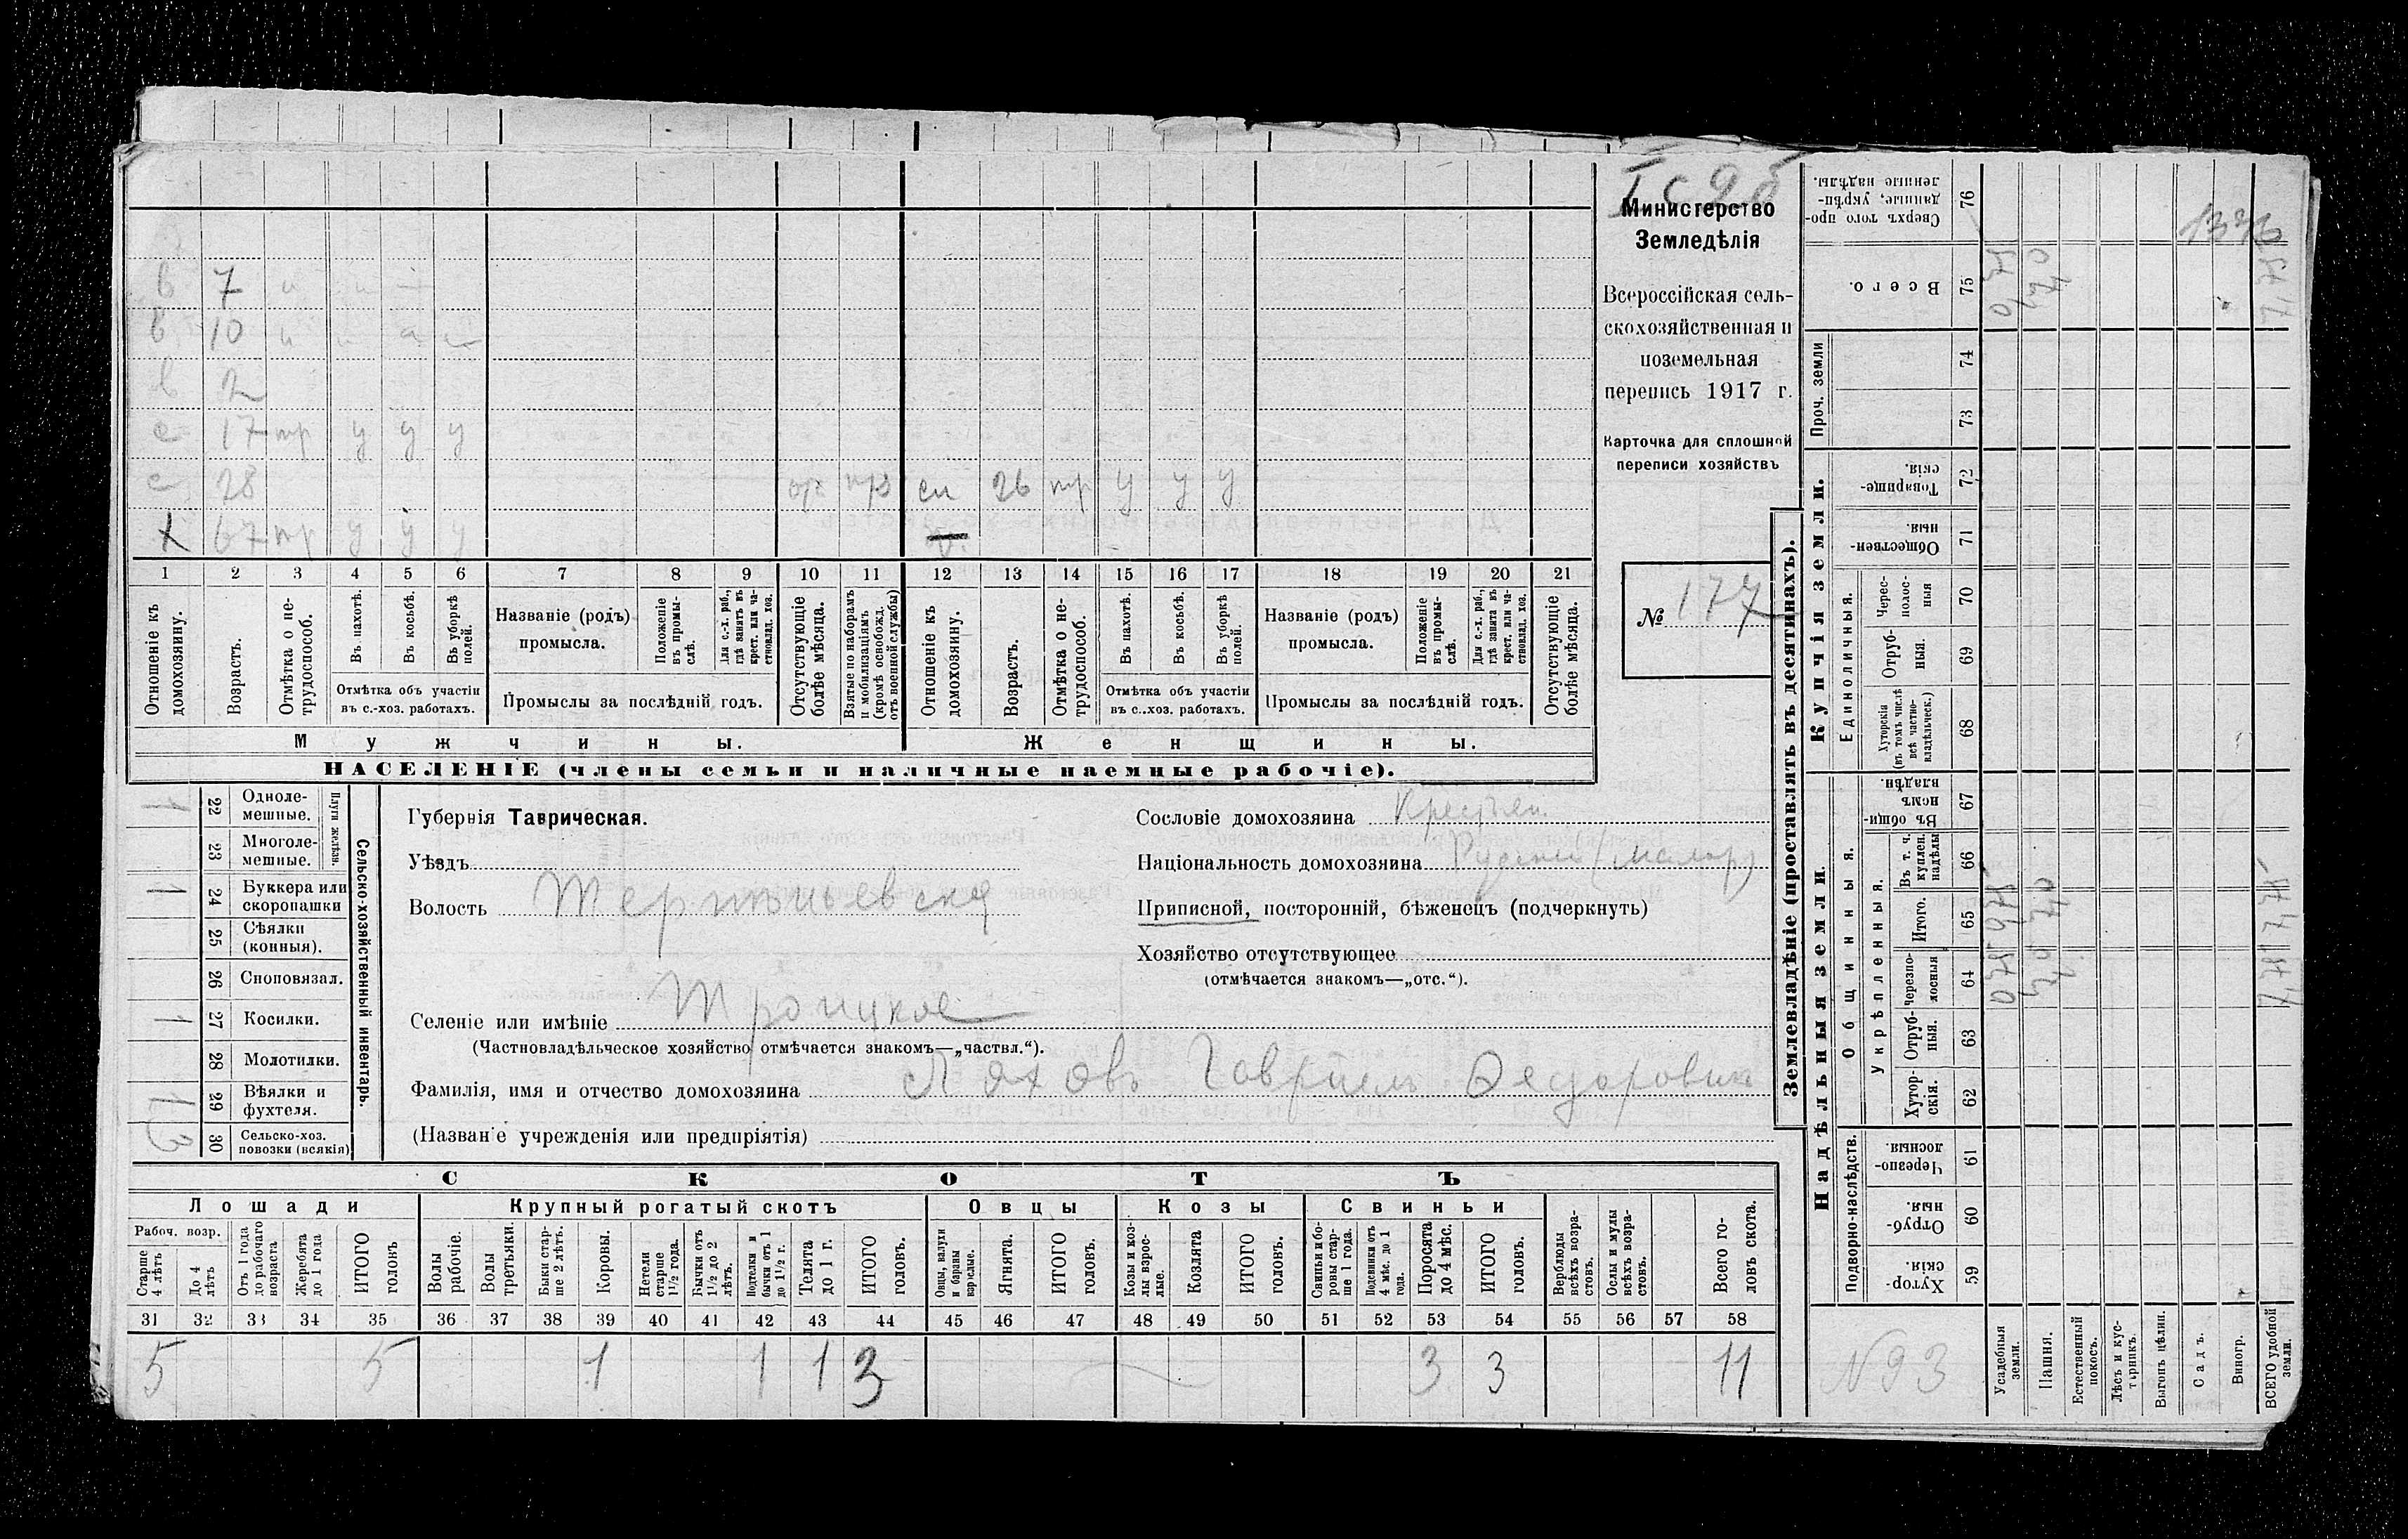 I с 9 б
Министерство
Земледѣлія
Всероссійская сель-
скохозяйственная и
поземельная
перепись 1917 г.
Карточка для сплошной
переписи хозяйствъ
№ 177
в 7
в 10
в 2
с 17 тр у у у
с 28 сн 26 тр у у у
х 67 тр у у у
1 2 3 4 5 6 7 8 9 10 11 12 13 14 15 16 17 18 19 20 21
Отношеніе къ домохозяину.
Возрастъ.
Отмѣтка о не-трудоспособ.
Въ пахотѣ.
Въ косьбѣ.
Въ уборкѣ полей.
Отмѣтка объ участіи
въ с.-хоз. работахъ.
Названіе (родъ)
промысла.
Положеніе въ промы-слѣ.
Для с.-х. раб., гдѣ занятъ въ крест. или ча-стновлад. хоз.
Промыслы за послѣдній годъ.
Отсутствующіе болѣе мѣсяца.
Взятые по наборамъ и мобилизаціямъ (кромѣ освобожд. отъ военной службы)
Отношеніе къ домохозяину.
Возрастъ.
Отмѣтка о не-трудоспособ.
Въ пахотѣ.
Въ косьбѣ.
Въ уборкѣ полей.
Отмѣтка объ участіи
въ с..хоз. работахъ.
Названіе (родъ)
промысла.
Положеніе въ промы-слѣ.
Для с.-х. раб., гдѣ занята въ крест. или ча-стновлад. хоз.
Промыслы за послѣдній годъ.
Отсутствующіе болѣе мѣсяца.
Мужчины.
Женщины.
НАСЕЛЕНІЕ (члены семьи и наличные наемные рабочіе).
Сельско-хозяйственный инвентарь.
Плуги желѣзн.
1 22 Одноле-мешные.
23 Многоле-мешные.
1 24 Буккера или скоропашки
25 Сѣялки (конныя).
26 Сноповязал.
1 27 Косилки.
28 Молотилки.
1 29 Вѣялки и фухтеля.
3 30 Сельско-хоз. повозки (всякія)
Губернія Таврическая.
Уѣздъ
Волость
Селеніе или имѣніе Троицкое
(Частновладѣльческое хозяйство отмѣчается знакомъ—„частвл.“).
Фамилія, имя и отчество домохозяина Ляховъ Гавріилъ Ѳедоровичъ
(Названіе учрежденія или предпріятія)
Сословіе домохозяина Крестьян.
Національность домохозяина Русскій (малор)
Приписной, посторонній, бѣженецъ (подчеркнуть)
Хозяйство отсутствующее
(отмѣчается знакомъ—„отс.“).
СКОТЪ
Лошади
Крупный рогатый скотъ
Овцы
Козы
Свиньи
Рабоч. возр.
Старше 4 лѣтъ
До 4 лѣтъ
Отъ 1 года до рабочаго возраста
Жеребята до 1 года
ИТОГО головъ
Волы рабочіе.
Волы третьяки.
Быки стар-ше 2 лѣтъ.
Коровы.
Нетели старше 1½ года.
Бычки отъ 1½ до 2 лѣтъ.
Подтелки и бычки отъ 1 до 1½ г.
Телята до 1 г.
ИТОГО головъ.
Овцы, валухи и бараны взрослые.
Ягнята.
ИТОГО головъ.
Козы и коз-лы взрос-лые.
Козлята
ИТОГО головъ.
Свиньи и бо-ровы стар-ше 1 года.
Подсвинки отъ 4 мѣс. до 1 года.
Поросята до 4 мѣс.
ИТОГО головъ.
Верблюды всѣхъ возра-стовъ.
Ослы и мулы всѣхъ возра-стовъ.
Всего го-ловъ скота.
31 32 33 34 35 36 37 38 39 40 41 42 43 44 45 46 47 48 49 50 51 52 53 54 55 56 57 58
5 5 1 1 1 3 3 3 11
Землевладѣніе (проставлять въ десятинахъ).
Купчія земли.
Надѣльныя земли.
Сверхъ того про-данные, укрѣп-ленные надѣлы. 76
Всего. 75
Проч. земли
74
73
Товарище-скія. 72
Обществен-ныя. 71
Единоличныя.
Черес-полос-ныя 70
Отруб-ныя. 69
Хуторскія (въ томъ числѣ всѣ частно-владѣльческ.) 68
Общинныя.
Въ общи-номъ владѣн. 67
Укрѣпленныя.
Въ т. ч. куплен. надѣлы 66
Итого. 65
Черезпо-лосныя 64
Отруб-ныя. 63
Хутор-скія. 62
Подворно-наслѣдств.
Черезпо-лосныя 61
Отруб-ныя. 60
Хутор-скія. 59
N 93
Усадебныя земли.
Пашня.
Естественный покосъ.
Лѣсъ и кус-тарникъ.
Выгонъ цѣлин.
Садъ.
Виногр.
ВСЕГО удобной земли.